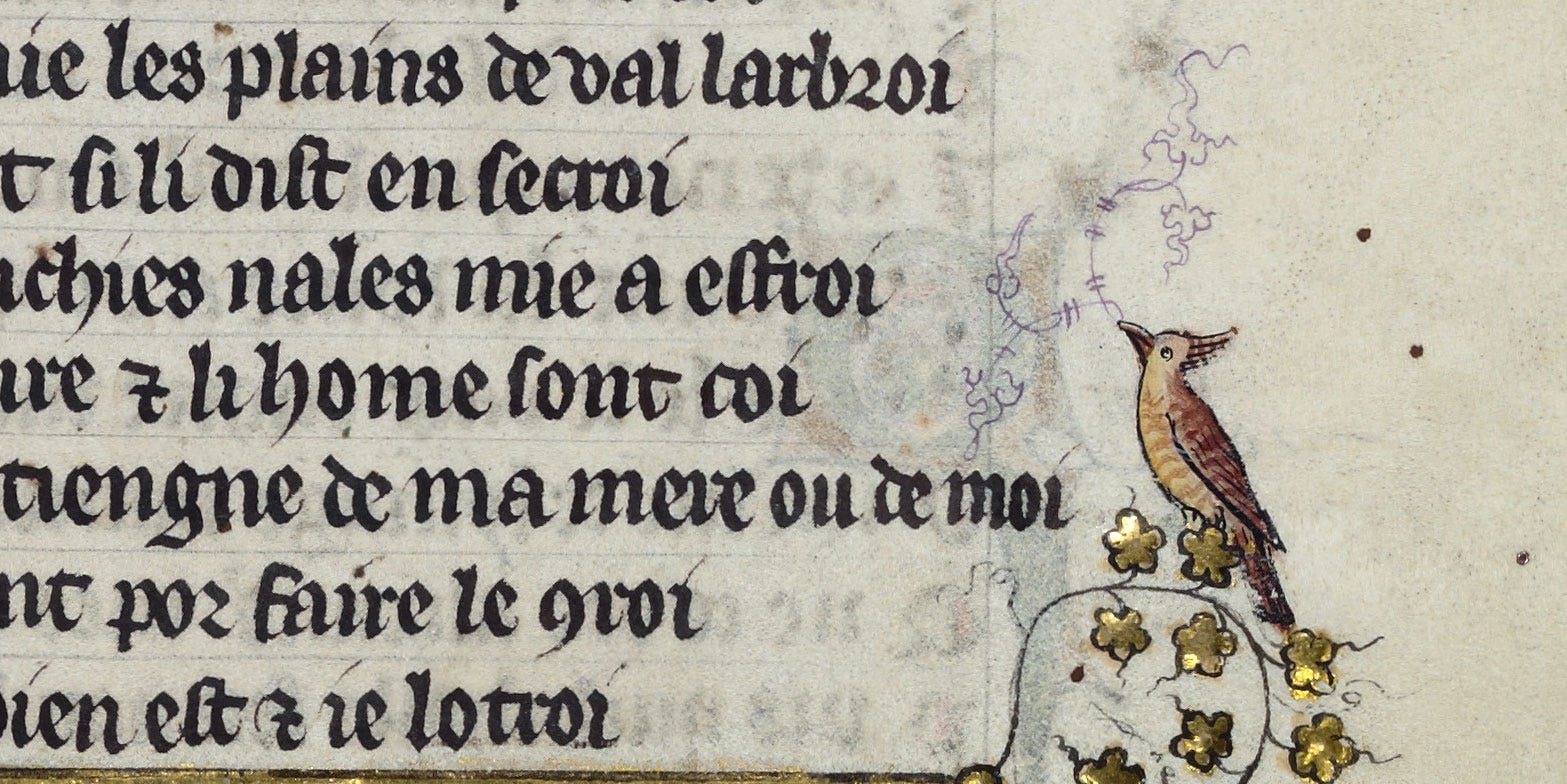 les plains de val larbroi
si li dist en secroi
nales mie a effroi
⁊ li home sont coi
tiengne de ma mere ou de moi
nt por faire le ꝯroi
bien est ⁊ ie lotroi